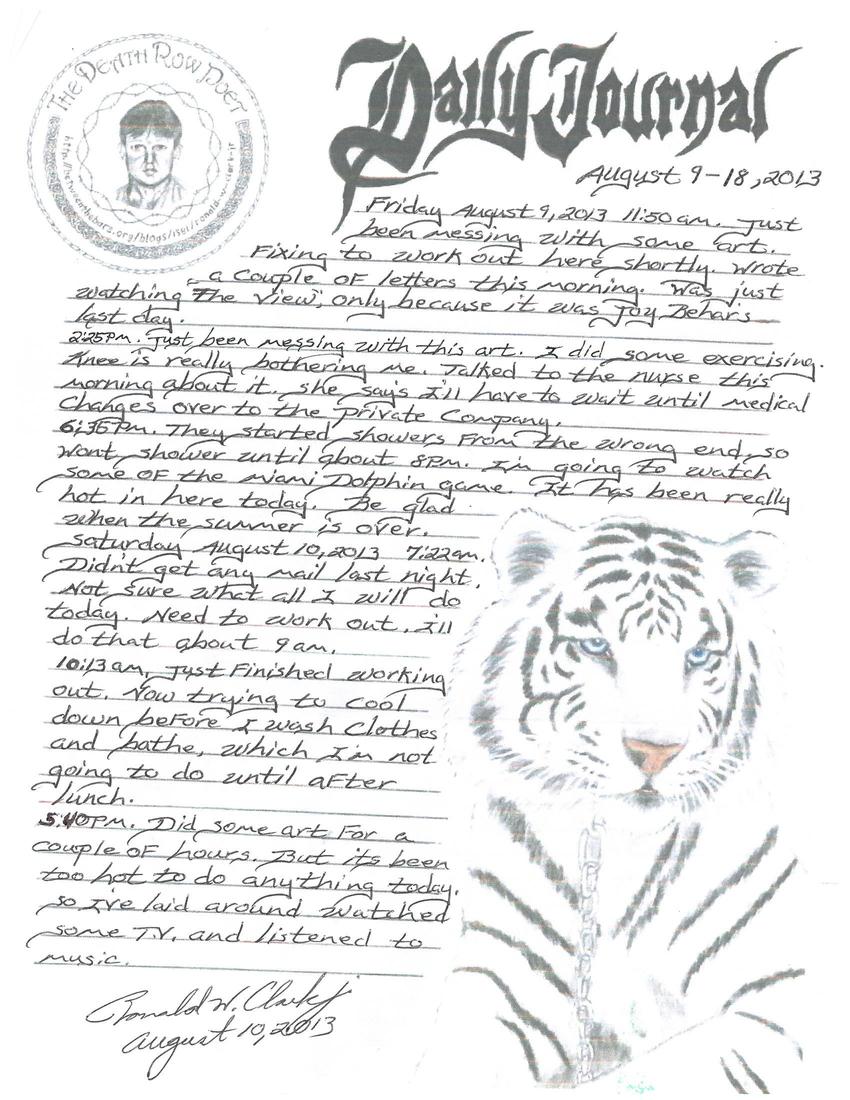 THE DEATH ROW POET
http://betweenthebars.org/blogs/1581/ronald-w-clark-jr
Daily Journal
August 9-18, 2013
Friday August 9, 2013 11:50 am. Just
been messing with some art.
Fixing to work out here shortly. Wrote
a couple of letters this morning. Was just
watching "The View", only because it was Joy Behar's
last day.
2:25pm. Just been messing with this art. I did some exercising.
Knee is really bothering me. Talked to the nurse this
morning about it. She say's I'll have to wait until medical
changes over to the private company.
6:35pm. They started showers from the wrong end, so
wont shower until about 8pm. I'm going to watch
some of the Miami Dolphin game. It has been really
hot in here today. Be glad
when the summer is over.
Saturday August 10, 2013 7:22am.
Didn't get any mail last night.
Not sure what all I will do
today. Need to work out. I'll
do that about 9 am.
10:13 am. Just Finished working
out. Now trying to cool
down before I wash clothes
and bathe, which I'm not
going to do until after
lunch.
5:40pm. Did some art For a
couple of hours. But its been
too hot to do anything today.
So I've laid around watched
some T.V. and listened to
music.
Ronald W. Clark Jr
August 10, 2013